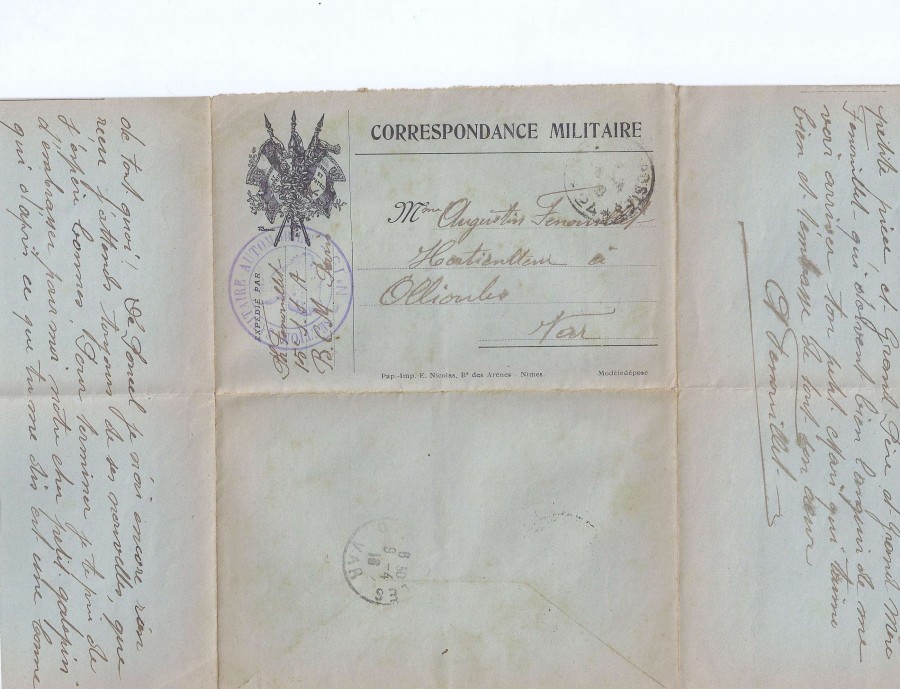 CORRESPONDANCE MILITAIRE
Mme Augustin Fenouillet
Horticulteur à
Ollioules
Var
EXPÉDIÉ PAR
Pap.-Imp. E. Nicolas, Bd des Arènes - Nimes
Modèle déposé
8 50
9 - 4
18
VAR
de tout quoi! De Louis je n'ai encore rien
rien j'attends toujours de ses nouvelles, que
j'espère bonnes. Pour terminer je te prie de
d'embrasser pour moi notre cher petit galopin
qui d'après ce que tu me dis est une bonne
petite pièce et Grand Père et Grand Mère
Fenouillet qui doivent bien languir de me
voir arriver ton petit mari qui t'aime
bien et t'embrasse de tout son cœur
A Fenouillet